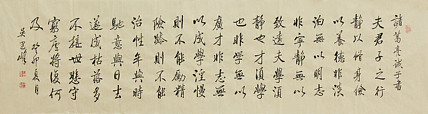 諸葛亮誡子書
夫君子之行
靜以修身儉
以養德非淡
泊無以明志
非寧靜無以
致遠夫學須
靜也才須學
也非學無以
廣才非志無
以成學淫慢
則不能勵精
險躁則不能
治性年與時
馳意與日去
遂成枯落多
不接世悲守
窮廬將復何
及 癸卯夏月